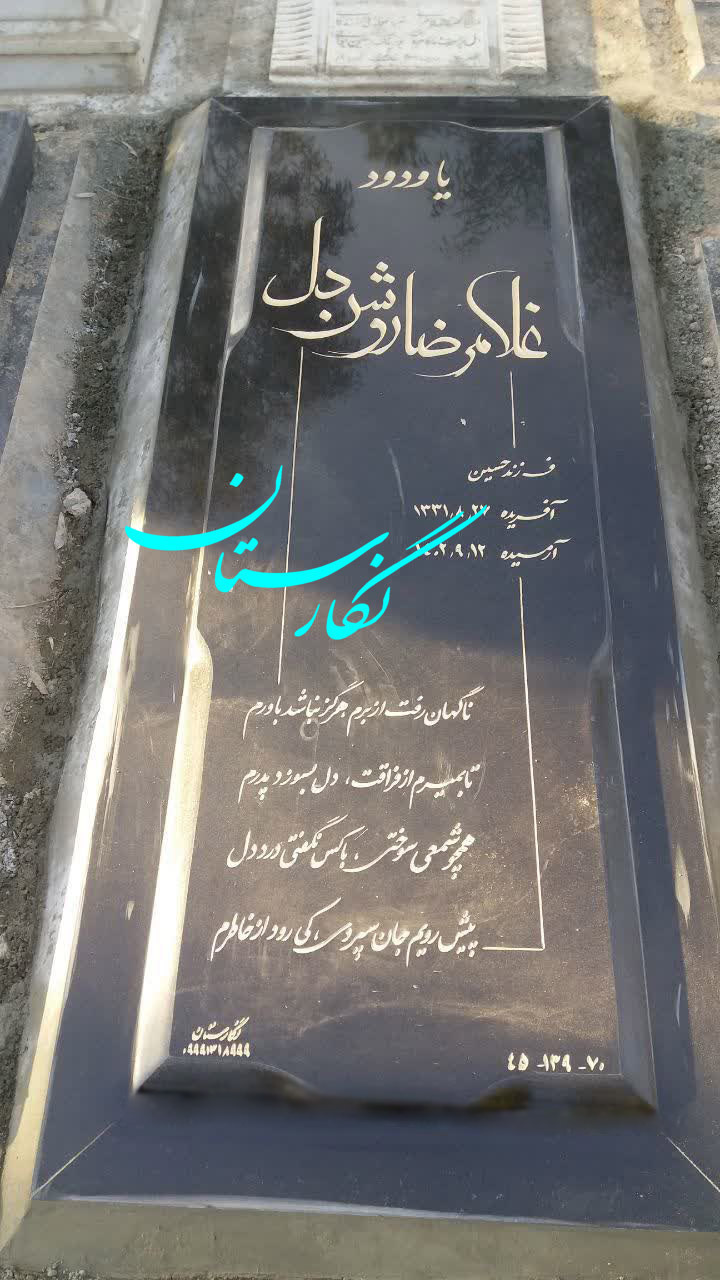 یا ودود
غلامرضا روشن دل
فرزند حسین
آفریده ۱۳۳۱٫۸٫۲۲
آرمیده ۱۴۰۲٫۹٫۱۲
نگارستان
ناگهان رفت از برم هرگز نباشد باورم
تا بمیرم از فراقت، دل بسوزد پدرم
همچو شمعی سوختی، با کس نگفتی درد دل
پیش رویم جان سپردی، کی رود از خاطرم
نگارستان
۰۹۹۹۱۳۱۸۹۹۹
۴۵ -۱۳۹ -۷۰